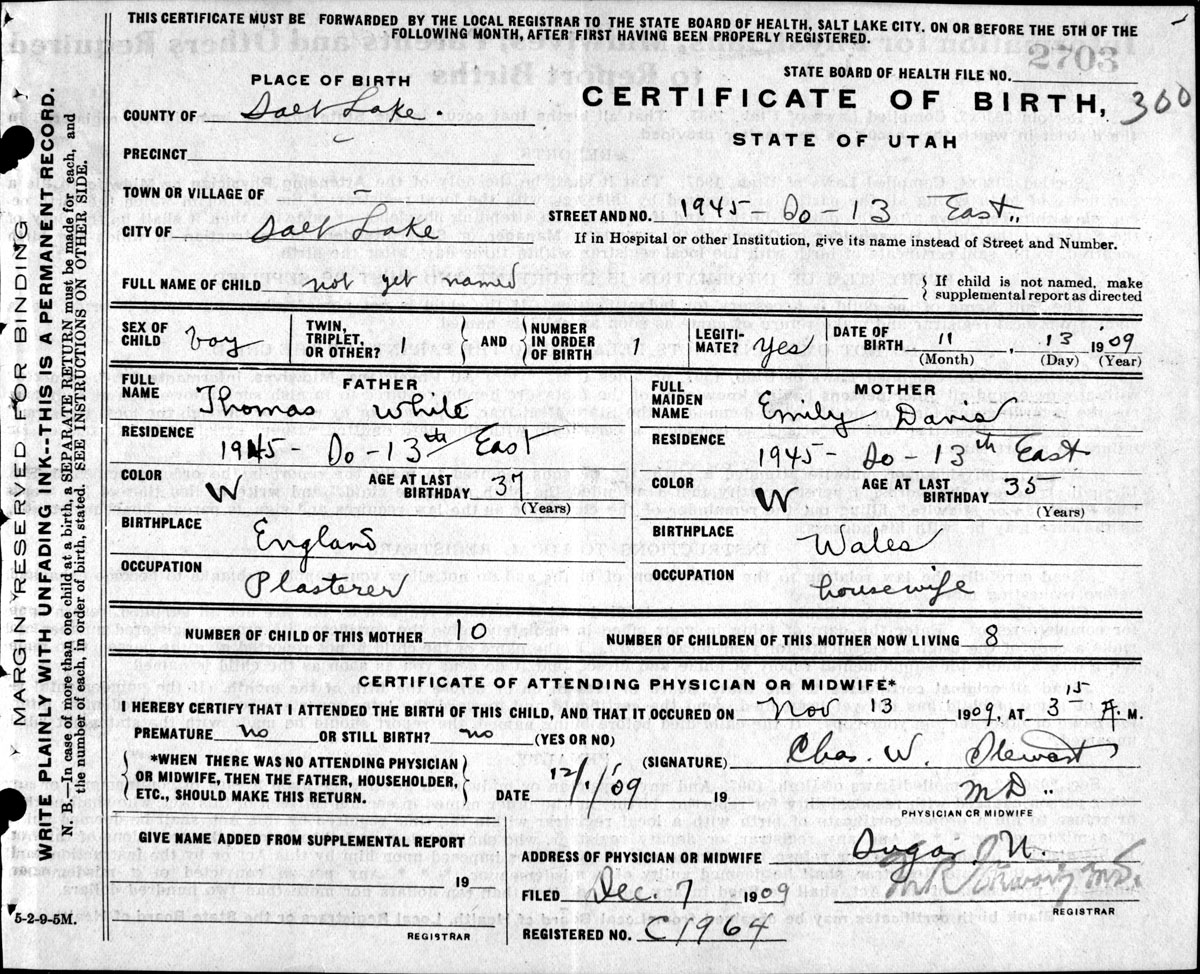 THIS CERTIFICATE MUST BE FORWARDED BY THE LOCAL REGISTRAR TO THE STATE BOARD OF HEALTH, SALT LAKE CITY, ON OR BEFORE THE 5TH OF THE
FOLLOWING MONTH, AFTER FIRST HAVING BEEN PROPERLY REGISTERED.
2703
STATE BOARD OF HEALTH FILE NO.
PLACE OF BIRTH
CERTIFICATE OF BIRTH, 300
COUNTY OF Salt Lake.
STATE OF UTAH
PRECINCT
TOWN OR VILLAGE OF –
STREET AND NO. 1945 So 13 East.
CITY OF Salt Lake
If in Hospital or other Institution, give its name instead of Street and Number.
FULL NAME OF CHILD not yet named
If child is not named, make
supplemental report as directed
SEX OF CHILD boy
TWIN, TRIPLET, OR OTHER?
AND
NUMBER IN ORDER OF BIRTH 1
LEGITIMATE? yes
DATE OF BIRTH 11, 13 1909
(Month) (Day) (Year)
FATHER
FULL NAME Thomas White
RESIDENCE
1945 So - 13th East
COLOR W
AGE AT LAST BIRTHDAY 37
(Years)
BIRTHPLACE
England
OCCUPATION
Plasterer
MOTHER
FULL MAIDEN NAME Emily Davis
RESIDENCE
1945 - So - 13th East
COLOR W
AGE AT LAST BIRTHDAY 35
(Years)
BIRTHPLACE
Wales
OCCUPATION
housewife
NUMBER OF CHILD OF THIS MOTHER 10
NUMBER OF CHILDREN OF THIS MOTHER NOW LIVING 8
CERTIFICATE OF ATTENDING PHYSICIAN OR MIDWIFE*
I HEREBY CERTIFY THAT I ATTENDED THE BIRTH OF THIS CHILD, AND THAT IT OCURED ON Nov 13 1909, AT 3 15 A. M.
PREMATURE no OR STILL BIRTH? no (YES OR NO)
*WHEN THERE WAS NO ATTENDING PHYSICIAN
OR MIDWIFE, THEN THE FATHER, HOUSEHOLDER,
ETC., SHOULD MAKE THIS RETURN.
(SIGNATURE) Chas. W. Stewart
DATE 12/1/09 19 MD
PHYSICIAN OR MIDWIFE
GIVE NAME ADDED FROM SUPPLEMENTAL REPORT
19
REGISTRAR
ADDRESS OF PHYSICIAN OR MIDWIFE Sugar
FILED Dec. 7 1909
REGISTRAR
REGISTERED NO. C1964
MARGIN RESERVED FOR BINDING
WRITE PLAINLY WITH UNFADING INK--THIS IS A PERMANENT RECORD.
N. B.—In case of more than one child at a birth, a SEPARATE RETURN must be made for each, and
the number of each, in order of birth, stated. SEE INSTRUCTIONS ON OTHER SIDE.
5-2-9-5M.